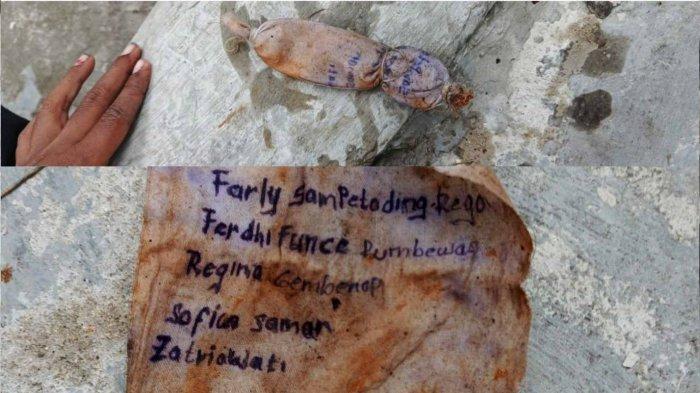 Farly Sampetoding.Rego
Ferdhi Funce Pumbewag
Regina Gembenop
Sofian Saman
Zatriawati